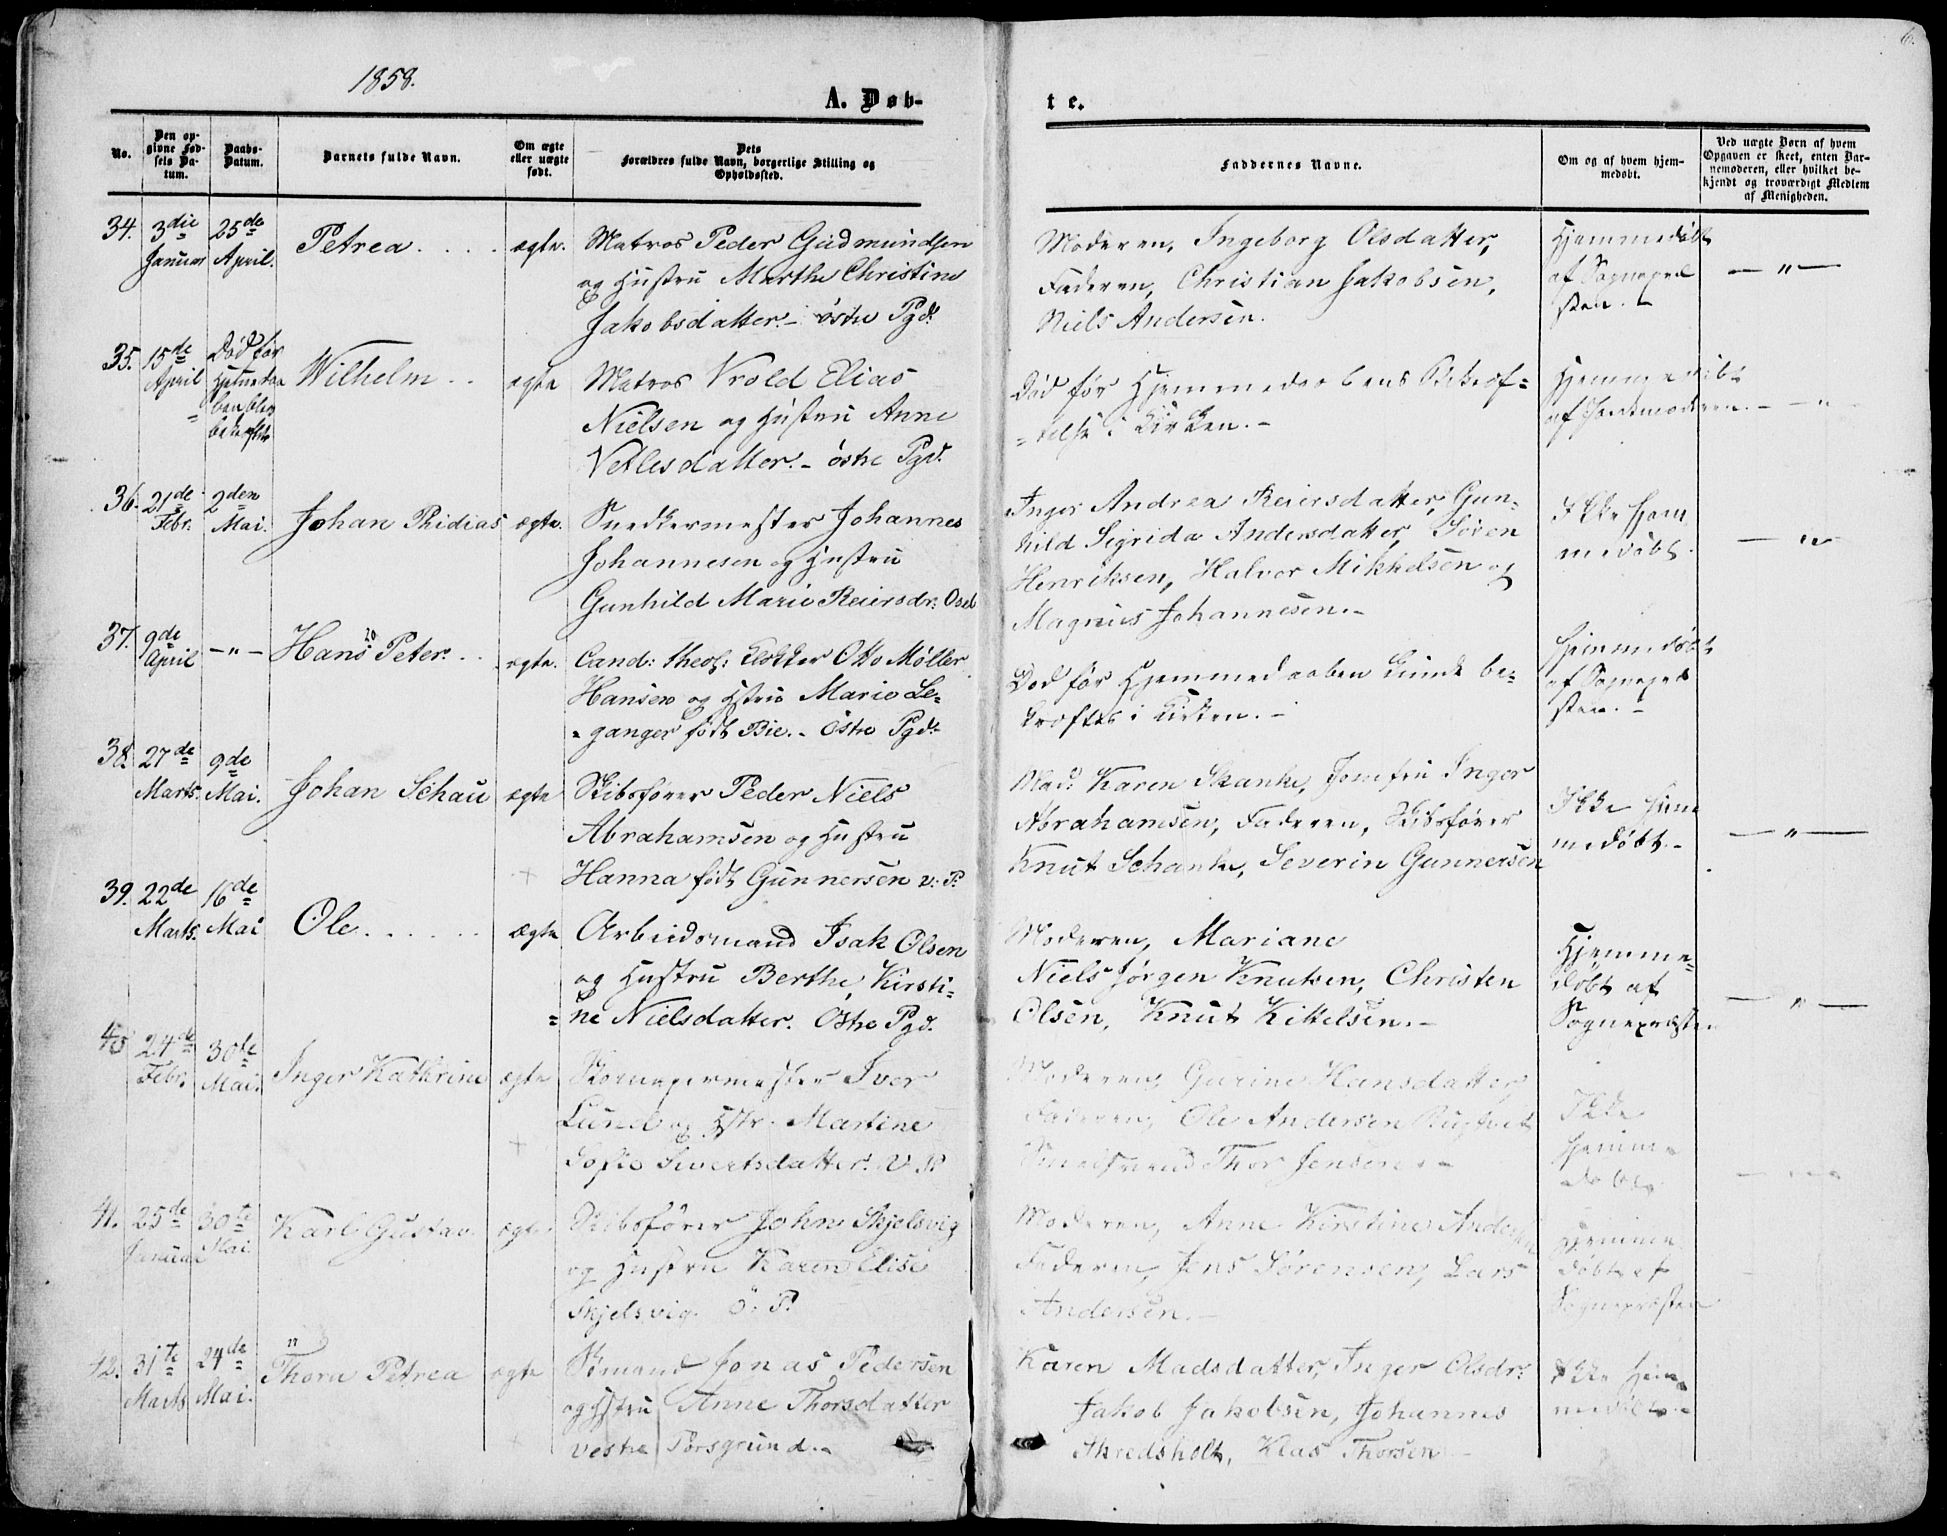 1858.
A. Døb-
t e.
6.
No.
Den op-
givne Fød-
sels Da-
tum.
Daabs-
Datum.
Barnets fulde Navn.
Om ægte
eller uægte
født.
Dets
Forældres fulde Navn, borgerlige Stilling og
Opholdssted.
Faddernes Navne.
Om og af hvem hjem-
medøbt.
Ved uægte Børn af hvem
Opgaven er skeet, enten Bar-
nemoderen, eller hvilket be-
kjendt og troværdigt Medlem
af Menigheden.
34.
3die
Januar
25de
April.
Petrea
ægte.
Matros Peder Gudmundsen
og Hustru Marthe Christine
Jakobsdatter. - østre Pgd.
Moderen, Ingeborg Olsdatter,
Faderen, Christian Jakobsen,
Niels Andersen.
Hjemmedøbt
af Sognepræ
sten. -
— " —
35.
15de
April
Død før
Hjemmedaa
ben blev
Wilhelm
ægte
Matros Vrold Elias
Nielsen og Hustru Anne
Vetlesdatter. - østre Pgd.
Død før Hjemmedaabens Bekræf=
=telse i Kirken. -
Hjemmedøbt
af Jordmoderen. -
— " —
36.
21de
Febr.
2den
Mai.
Johan Phidias
ægte.
Snedkermester Johannes
Johannesen og Hustru
Gunhild Marie Reiersdr:
Inger Andrea Reiersdatter, Gun-
hild Sigrida Andersdatter, Søren
Henriksen, Halvor Mikkelsen og
Magnus Johannesen. -
Ikke hjem
medøbt.
— " —
37.
9de
April
— " —
20
Hans Peter.
ægte.
Cand: theol: Klokker Otto Møller
Hansen og Hstru Marie Le=
=ganger født Bie. - Østre Pgd.
Død før Hjemmedaaben kunde be-
kræftes i Kirken. -
Hjemmedøbt
af Sognepræ
sten. -
38.
27de
Marts.
9de
Mai.
Johan Schau
ægte
Skibsfører Peder Niels
Abrahamsen og Hustru
Hanna født Gunnersen v: P.
Mad: Karen Skanke, Jomfru Inger
Abrahamsen, Faderen, Skibsfører
Knut Schanke, Severin Gunnersen
Ikke hjem
medøbt. -
— " —
39.
22de
Marts.
16de
Mai
Ole
ægte
Arbeidsmand Isak Olsen
og Hustru Berthe Kirsti=
=ne Nielsdatter. Østre Pgd.
Moderen, Mariane
Niels Jørgen Knutsen, Christen
Olsen, Knut Kittelsen. -
Hjemme=
døbt af
Sognepræsten
— " —
40
24de
Febr.
30te
Mai.
Inger Kathrine
ægte
Iver
Lund og Hstr. Martine
Sofie Sivertsdatter. V. P.
Moderen, Gurine Hansdatter,
Faderen, Ole Andersen
Thor Jensen. -
Ikke
hjemme
døbt
41.
25de
Januar
30te
Mai
Karl Gustav
ægte
Skibsfører John Skjelsvig
og Hustru Karen Elise
Skjelsvig. Ø. P.
Moderen, Anne Kirstine
Faderen, Jens Sørensen, Lars
Andersen. -
Hjemme
døbt af
Sognepræsten
42.
31te
Marts
24de
Mai.
Thora Petrea
ægte
Sømand Jonas Pedersen
og Hstru Anne Thorsdatter
vestre Porsgrund. -
Karen Madsdatter, Inger Olsdr:
Jakob Jakobsen, Johannes
Klas Thorsen
Ikke hjem=
medøbt. -